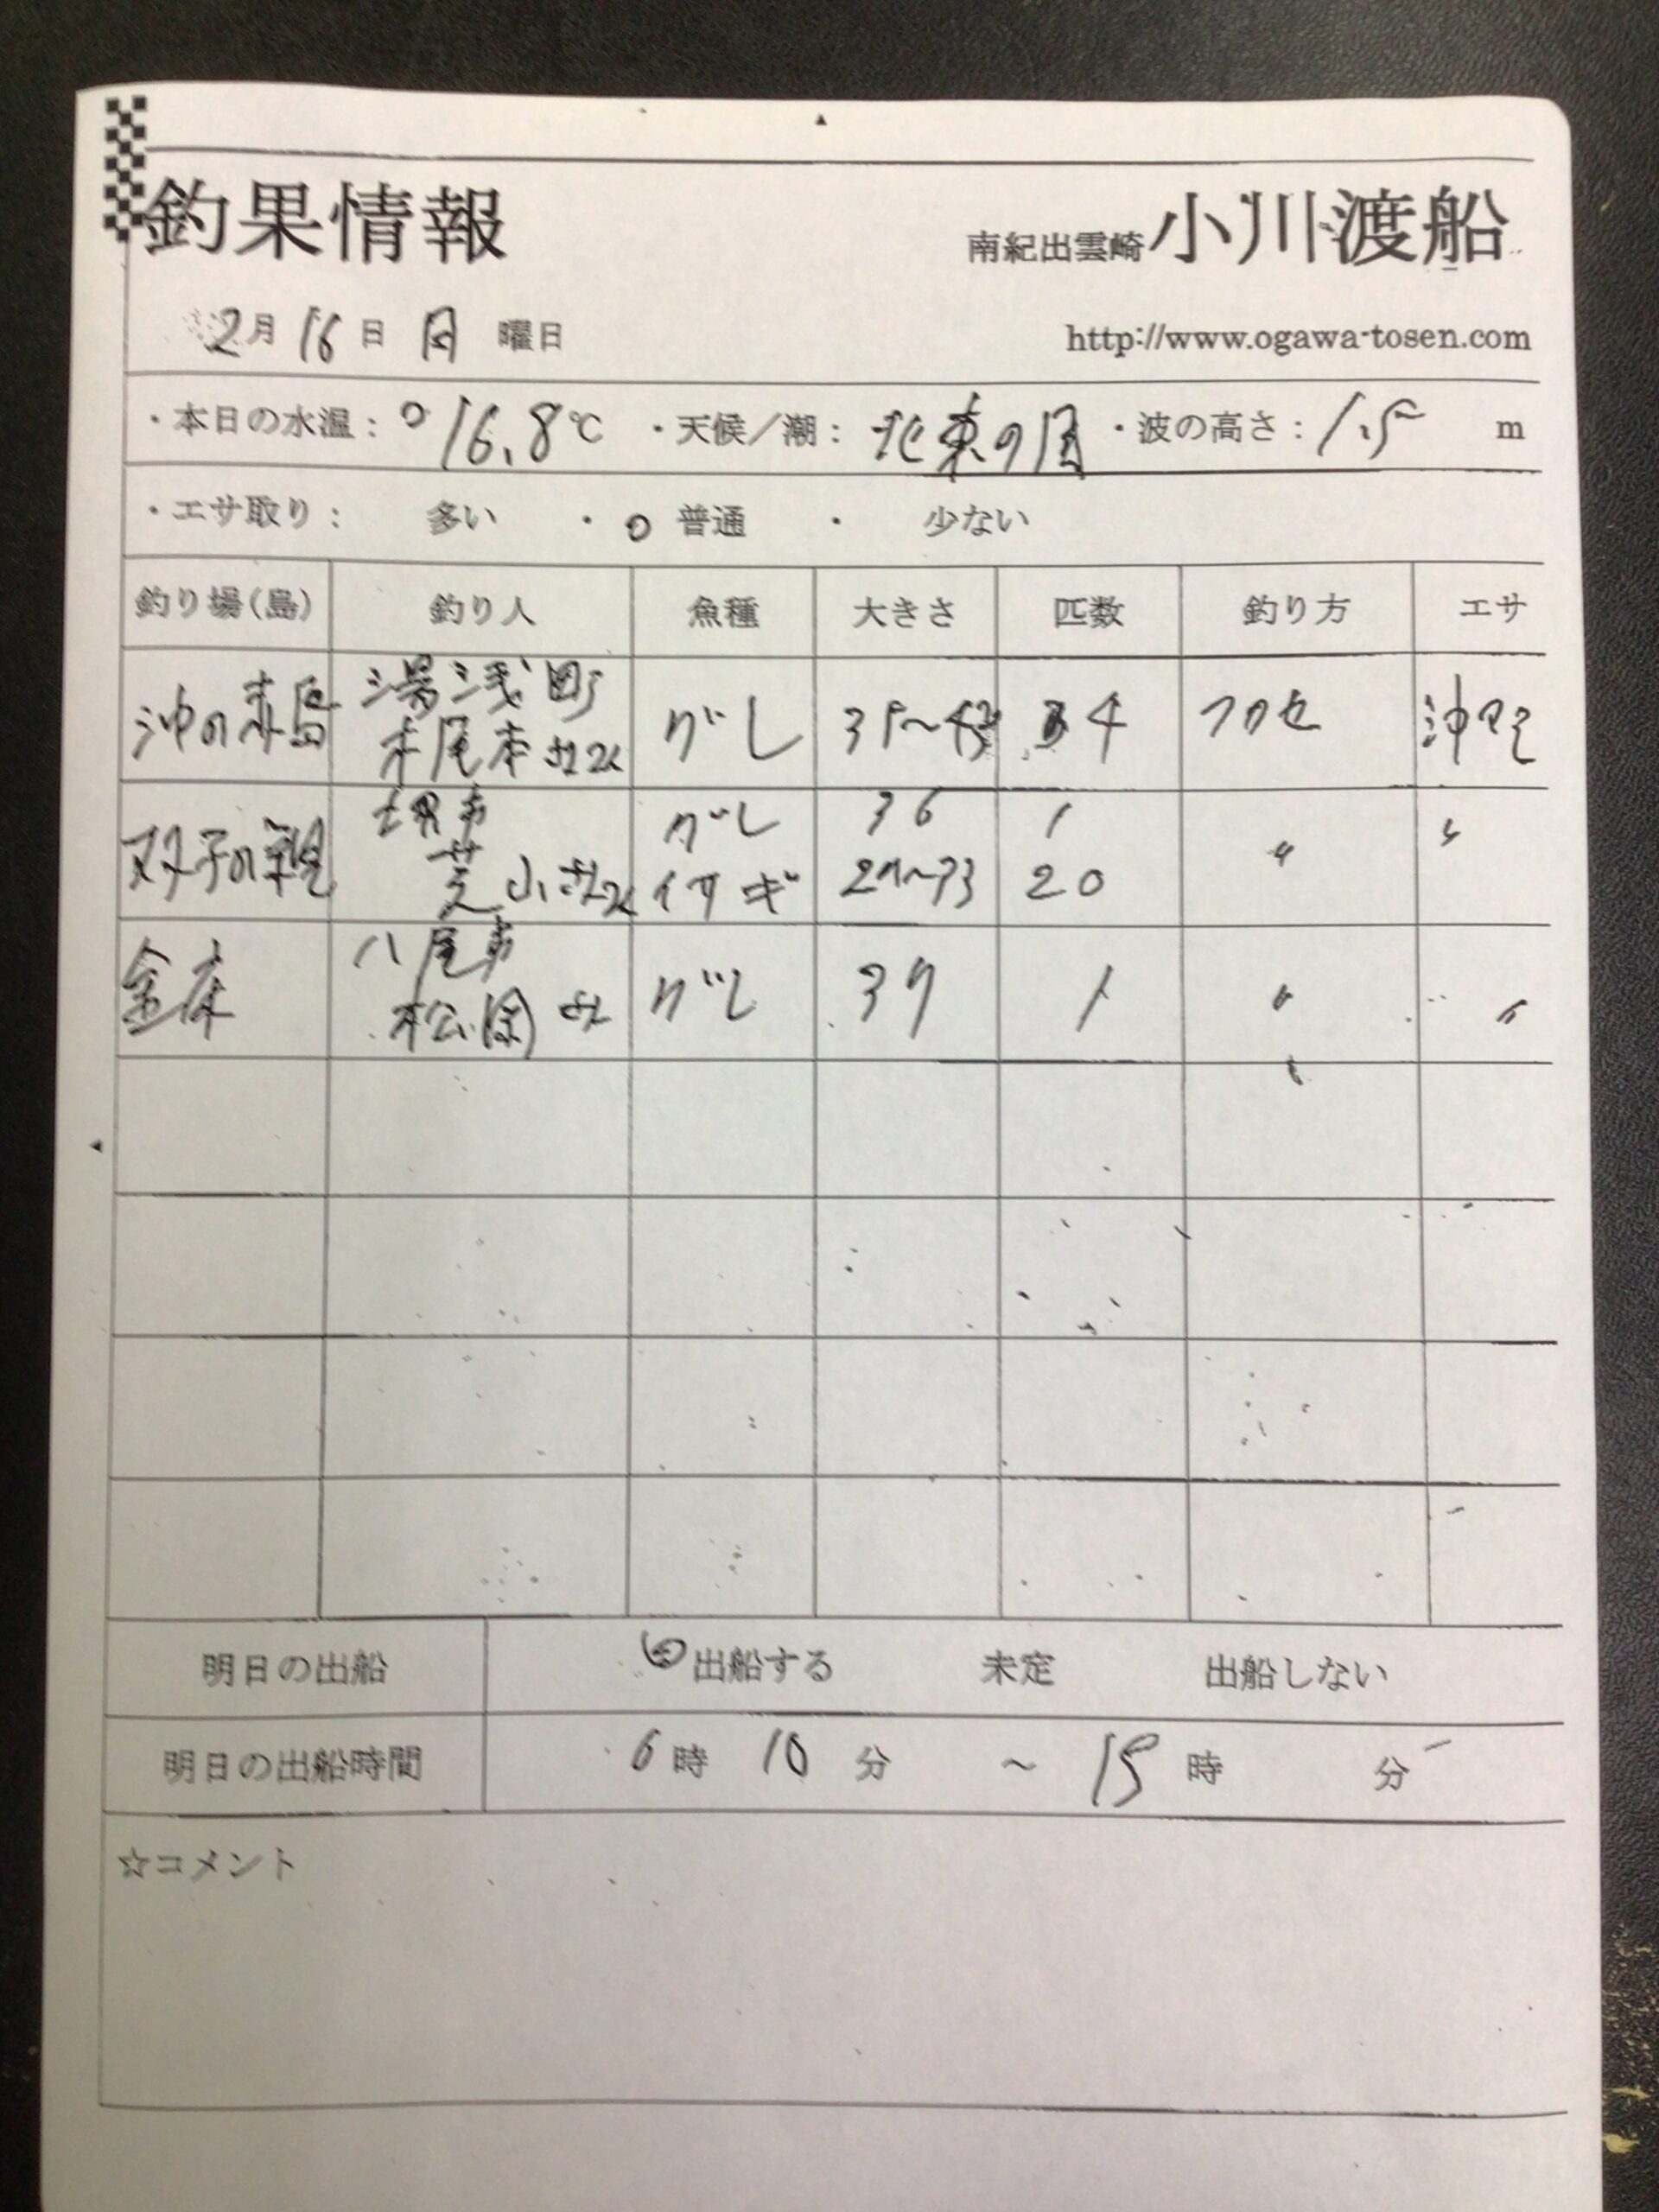 釣果情報
南紀出雲崎 小川渡船
2月 16日 月 曜日
http://www.ogawa-tosen.com
・本日の水温: 16.8℃ ・天候/潮: 北東の風 ・波の高さ: 1.5 m
・エサ取り: 多い ・ ○ 普通 ・ 少ない
釣り場(島) 釣り人 魚種 大きさ 匹数 釣り方 エサ
湯浅町
沖の赤島 木尾本さん グレ 35~43 4 フカセ 沖アミ
堺市 グレ 36 1
双子の親 芝山さん イサギ 27~33 20 〃 〃
八尾市
金床 松園 グレ 37 1 〃 〃
明日の出船 出船する 未定 出船しない
明日の出船時間 6時 10分 ~ 15時 分
☆コメント